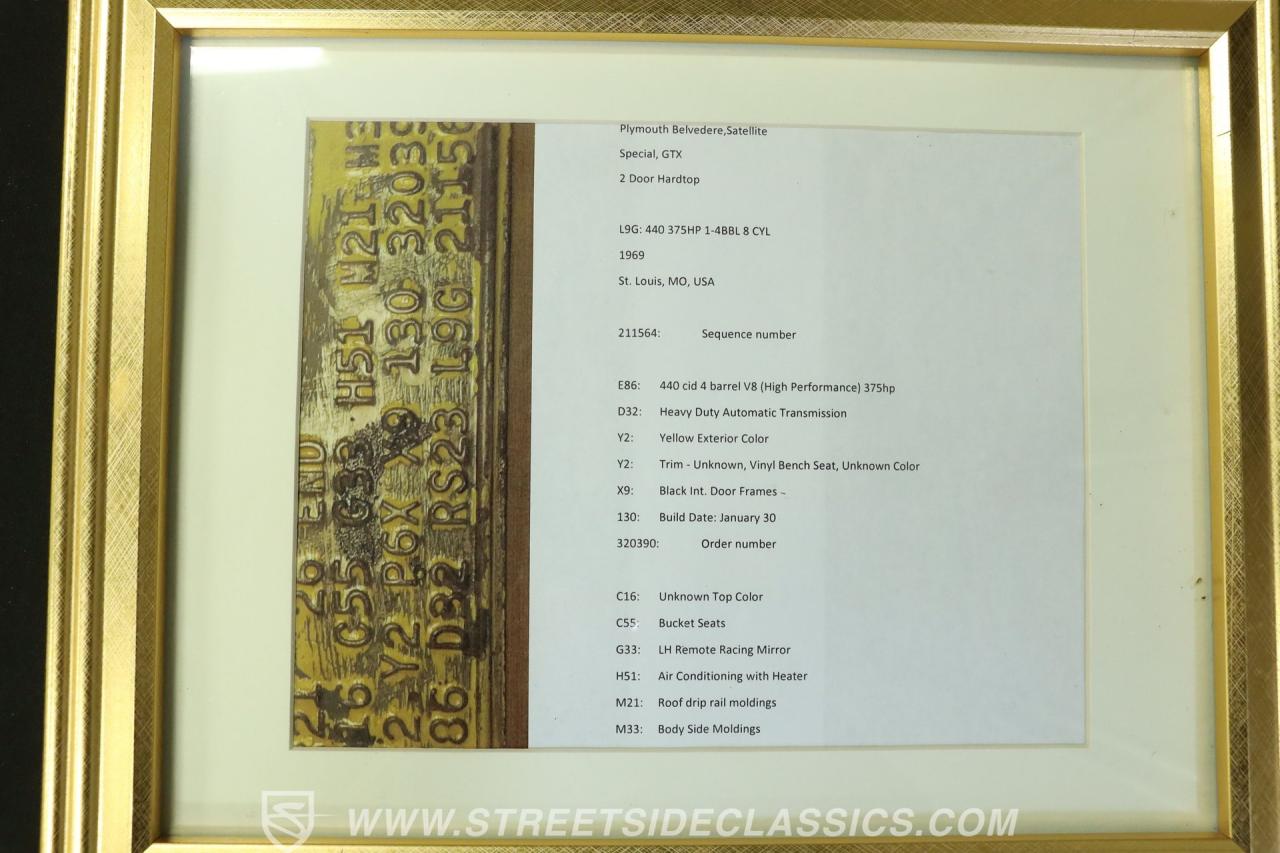 21/ 26 END
16 C55 G33 H51 M21 M3
2 Y2 P6X X9 130 32039
86 D32 RS23 L9G 21156
Plymouth Belvedere,Satellite
Special, GTX
2 Door Hardtop
L9G: 440 375HP 1-4BBL 8 CYL
1969
St. Louis, MO, USA
211564: Sequence number
E86: 440 cid 4 barrel V8 (High Performance) 375hp
D32: Heavy Duty Automatic Transmission
Y2: Yellow Exterior Color
Y2: Trim - Unknown, Vinyl Bench Seat, Unknown Color
X9: Black Int. Door Frames
130: Build Date: January 30
320390: Order number
C16: Unknown Top Color
C55: Bucket Seats
G33: LH Remote Racing Mirror
H51: Air Conditioning with Heater
M21: Roof drip rail moldings
M33: Body Side Moldings
WWW.STREETSIDECLASSICS.COM